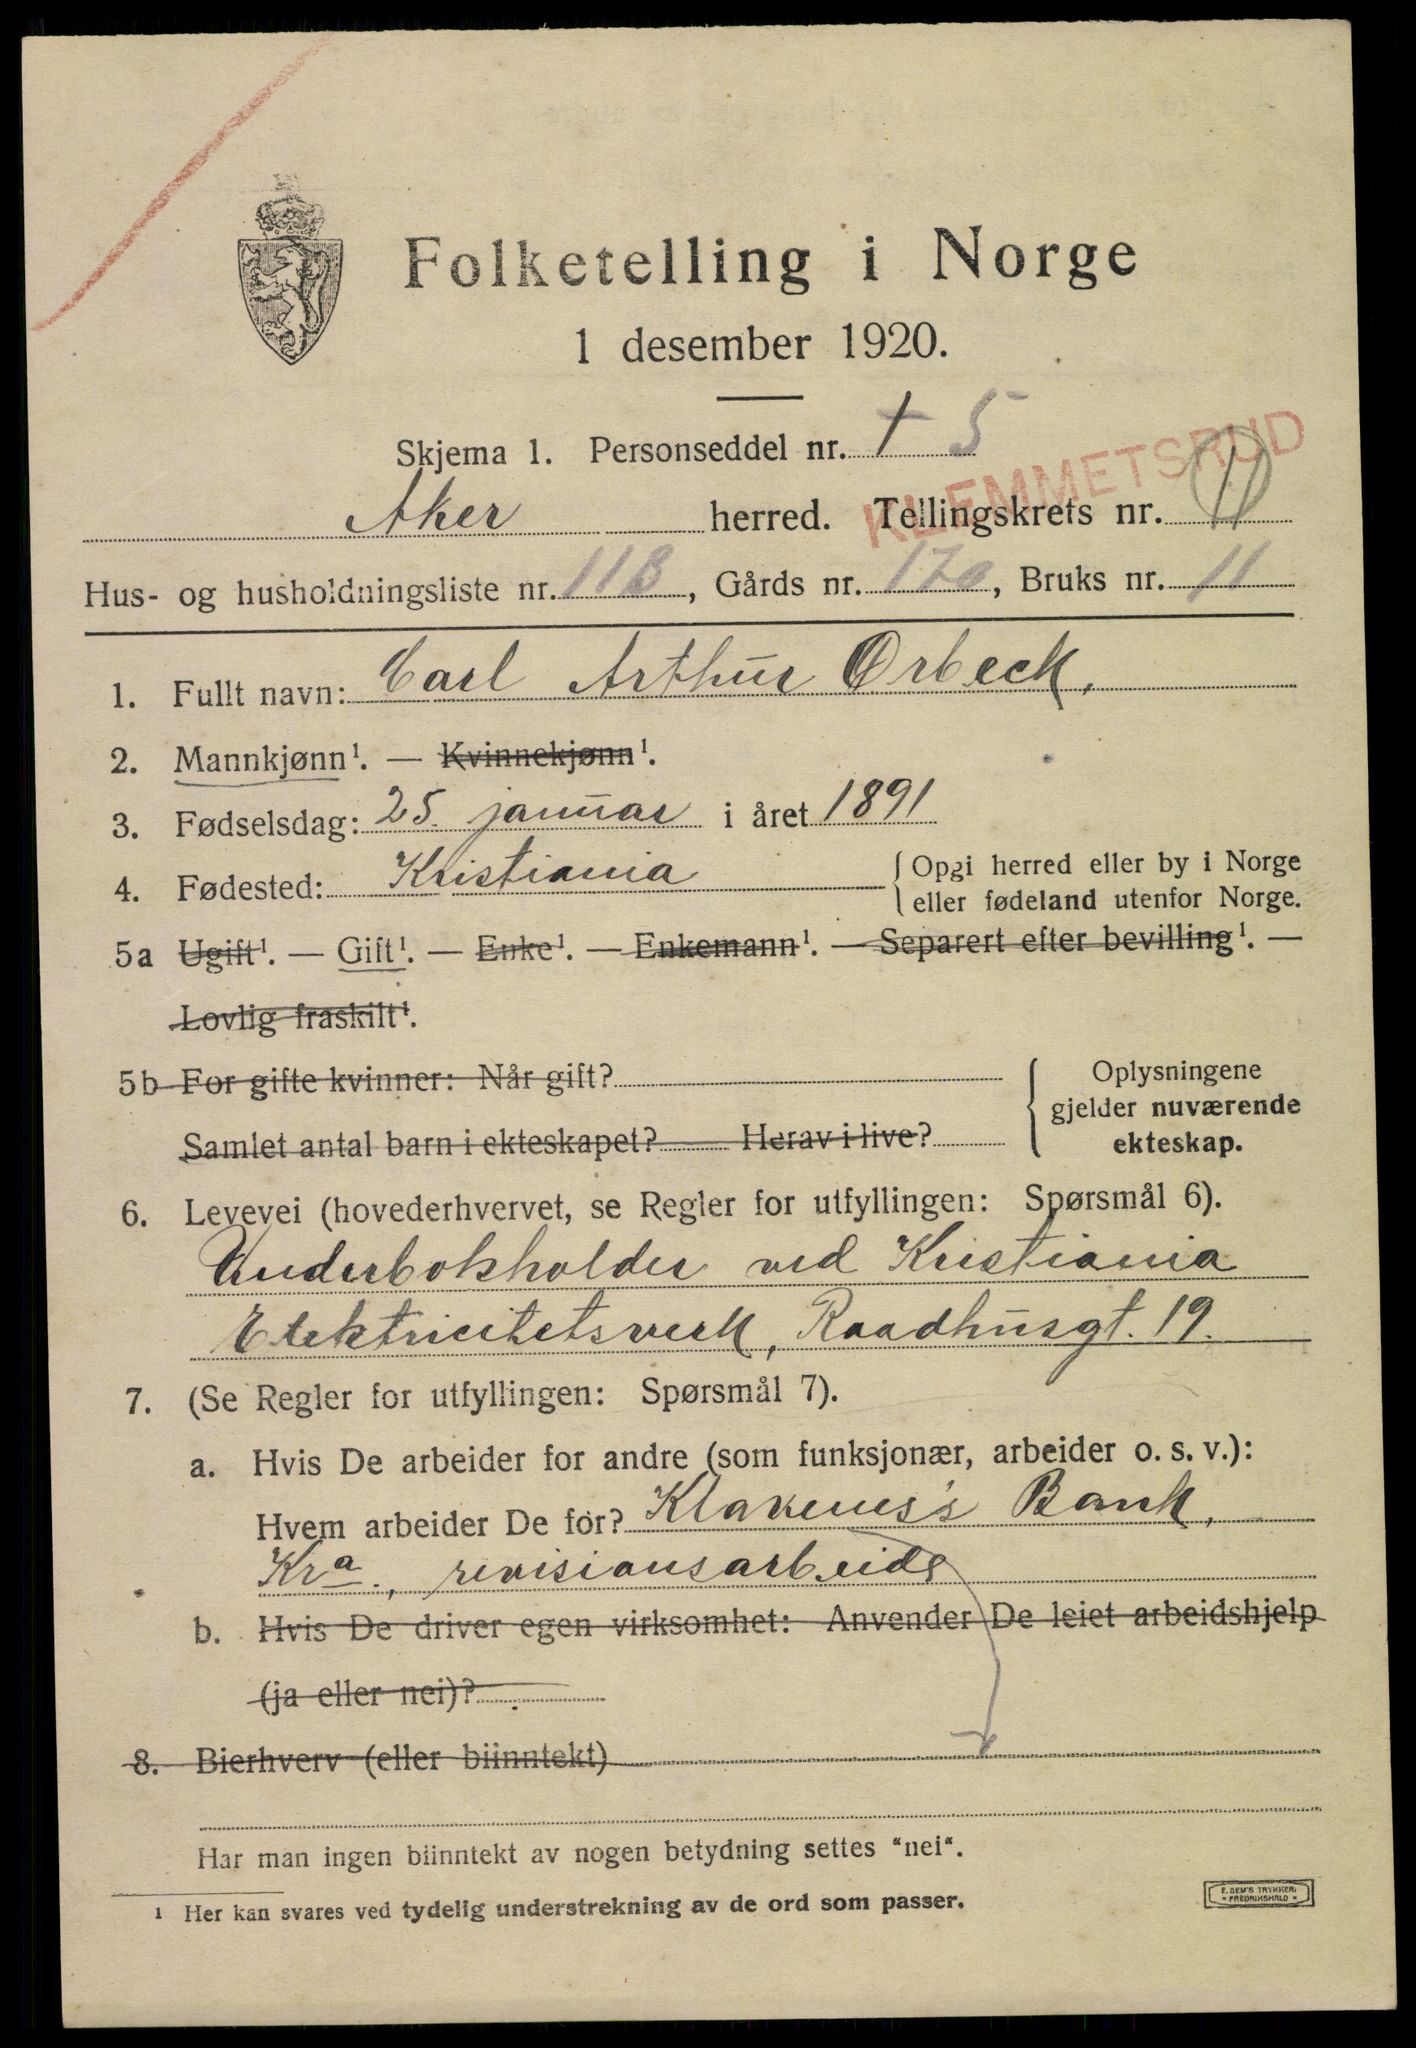 Folketelling i Norge
1 desember 1920.
Skjema 1. Personseddel nr. 1 5
KLEMMETSRUD
Aker herred. Tellingskrets nr. 11
Hus- og husholdningsliste nr. 113, Gårds nr. 170, Bruks nr. 11
1. Fullt navn: Carl Arthur Orbeck.
2. Mannkjønn¹. — Kvinnekjønn¹.
3. Fødselsdag: 25. januar i året 1891
4. Fødested: Kristiania { Opgi herred eller by i Norge
eller fødeland utenfor Norge.
5a Ugift¹. — Gift¹. — Enke¹. — Enkemann¹. — Separert efter bevilling¹. —
Lovlig fraskilt¹.
5b For gifte kvinner: Når gift?
Samlet antal barn i ekteskapet? Herav i live?
{ Oplysningene
gjelder nuværende
ekteskap.
6. Levevei (hovederhvervet, se Regler for utfyllingen: Spørsmål 6).
Underbokholder ved Kristiania
Elektricitetsverk, Raadhusgt. 19.
7. (Se Regler for utfyllingen: Spørsmål 7).
a. Hvis De arbeider for andre (som funksjonær, arbeider o. s. v.):
Hvem arbeider De for? Klaveness's Bank,
Kra., revisionsarbeide
b. Hvis De driver egen virksomhet: Anvender De leiet arbeidshjelp
(ja eller nei)?
8. Bierhverv (eller biinntekt)
Har man ingen biinntekt av nogen betydning settes “nei“.
¹ Her kan svares ved tydelig understrekning av de ord som passer.
E. SEM'S TRYKKERI
FREDRIKSHALD